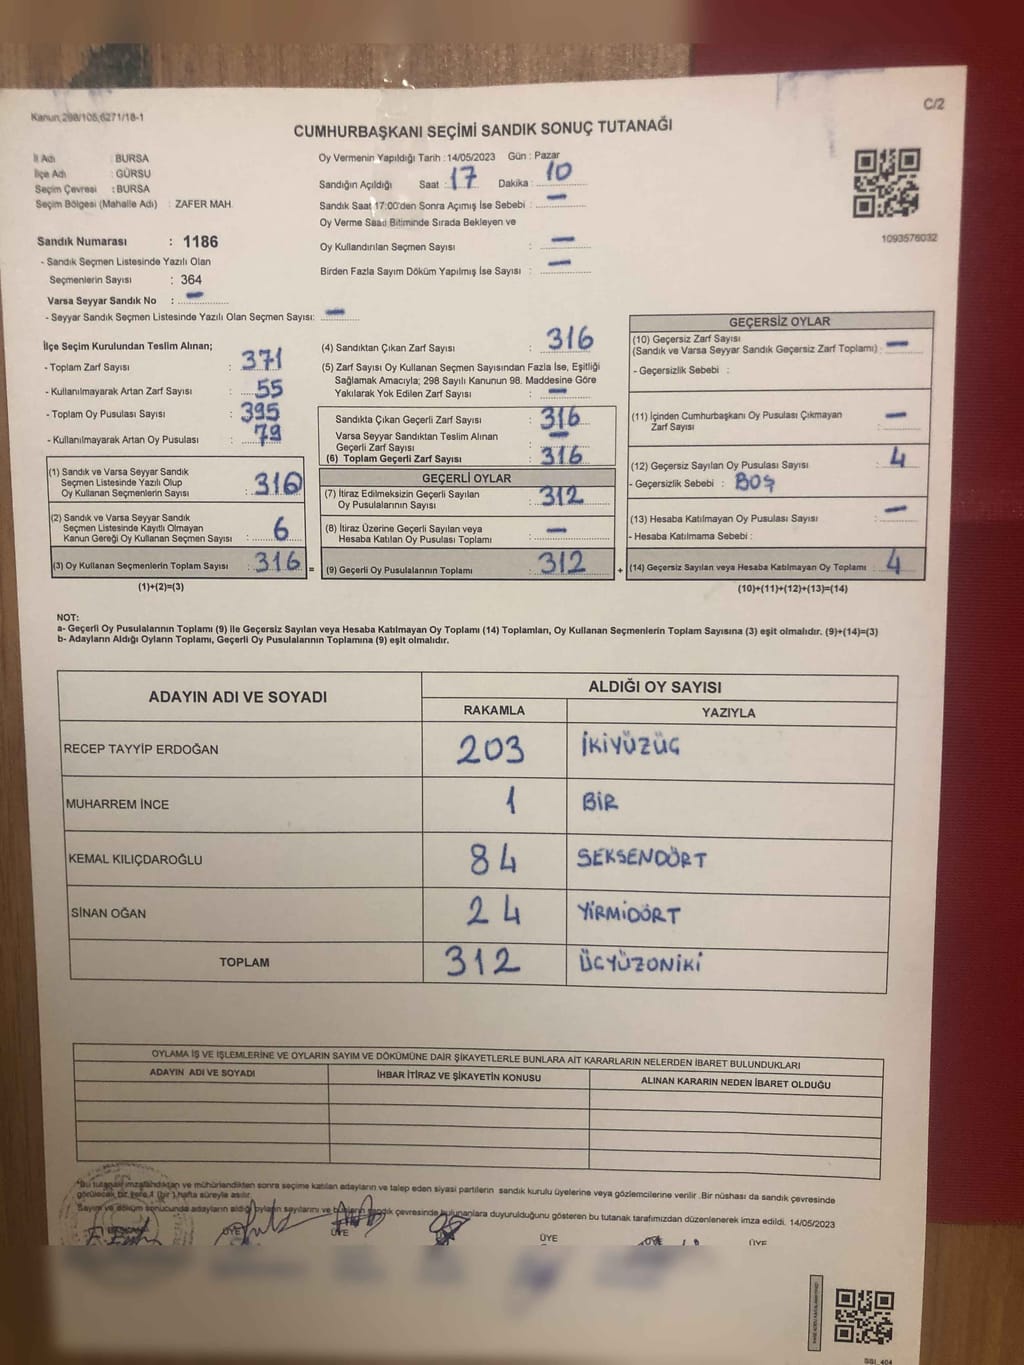 Kanun,298/105,6271/18-1
C/2
CUMHURBAŞKANI SEÇİMİ SANDIK SONUÇ TUTANAĞI
İl Adı : BURSA
İlçe Adı : GÜRSU
Seçim Çevresi : BURSA
Seçim Bölgesi (Mahalle Adı) : ZAFER MAH.
Sandık Numarası : 1186
- Sandık Seçmen Listesinde Yazılı Olan
Seçmenlerin Sayısı : 364
Varsa Seyyar Sandık No : —
- Seyyar Sandık Seçmen Listesinde Yazılı Olan Seçmen Sayısı: —
Oy Vermenin Yapıldığı Tarih : 14/05/2023 Gün : Pazar
Sandığın Açıldığı Saat : 17 Dakika : 10
Sandık Saat 17:00'den Sonra Açımış İse Sebebi : —
Oy Verme Saati Bitiminde Sırada Bekleyen ve
Oy Kullandırılan Seçmen Sayısı : —
Birden Fazla Sayım Döküm Yapılmış İse Sayısı : —
1093576032
İlçe Seçim Kurulundan Teslim Alınan;
- Toplam Zarf Sayısı : 371
- Kullanılmayarak Artan Zarf Sayısı : 55
- Toplam Oy Pusulası Sayısı : 395
- Kullanılmayarak Artan Oy Pusulası : 79
(1) Sandık ve Varsa Seyyar Sandık
Seçmen Listesinde Yazılı Olup
Oy Kullanan Seçmenlerin Sayısı :
(2) Sandık ve Varsa Seyyar Sandık
Seçmen Listesinde Kayıtlı Olmayan
Kanun Gereği Oy Kullanan Seçmen Sayısı : 6
(3) Oy Kullanan Seçmenlerin Toplam Sayısı : 316
(1)+(2)=(3)
(4) Sandıktan Çıkan Zarf Sayısı : 316
(5) Zarf Sayısı Oy Kullanan Seçmen Sayısından Fazla İse, Eşitliği
Sağlamak Amacıyla; 298 Sayılı Kanunun 98. Maddesine Göre
Yakılarak Yok Edilen Zarf Sayısı : —
Sandıkta Çıkan Geçerli Zarf Sayısı : 316
Varsa Seyyar Sandıktan Teslim Alınan
Geçerli Zarf Sayısı : —
(6) Toplam Geçerli Zarf Sayısı : 316
GEÇERLİ OYLAR
(7) İtiraz Edilmeksizin Geçerli Sayılan
Oy Pusulalarının Sayısı : 312
(8) İtiraz Üzerine Geçerli Sayılan veya
Hesaba Katılan Oy Pusulası Toplamı : —
= (9) Geçerli Oy Pusulalarının Toplamı : 312
GEÇERSİZ OYLAR
(10) Geçersiz Zarf Sayısı
(Sandık ve Varsa Seyyar Sandık Geçersiz Zarf Toplamı) : —
- Geçersizlik Sebebi :
(11) İçinden Cumhurbaşkanı Oy Pusulası Çıkmayan
Zarf Sayısı : —
(12) Geçersiz Sayılan Oy Pusulası Sayısı : 4
- Geçersizlik Sebebi : BOŞ
(13) Hesaba Katılmayan Oy Pusulası Sayısı : —
- Hesaba Katılmama Sebebi :
+ (14) Geçersiz Sayılan veya Hesaba Katılmayan Oy Toplamı : 4
(10)+(11)+(12)+(13)=(14)
NOT:
a- Geçerli Oy Pusulalarının Toplamı (9) ile Geçersiz Sayılan veya Hesaba Katılmayan Oy Toplamı (14) Toplamları, Oy Kullanan Seçmenlerin Toplam Sayısına (3) eşit olmalıdır. (9)+(14)=(3)
b- Adayların Aldığı Oyların Toplamı, Geçerli Oy Pusulalarının Toplamına (9) eşit olmalıdır.
ADAYIN ADI VE SOYADI
ALDIĞI OY SAYISI
RAKAMLA YAZIYLA
RECEP TAYYİP ERDOĞAN 203 İKİYÜZÜÇ
MUHARREM İNCE 1 BİR
KEMAL KILIÇDAROĞLU 84 SEKSENDÖRT
SİNAN OĞAN 24 YİRMİDÖRT
TOPLAM 312 ÜÇYÜZONİKİ
OYLAMA İŞ VE İŞLEMLERİNE VE OYLARIN SAYIM VE DÖKÜMÜNE DAİR ŞİKAYETLERLE BUNLARA AİT KARARLARIN NELERDEN İBARET BULUNDUKLARI
ADAYIN ADI VE SOYADI İHBAR İTİRAZ VE ŞİKAYETİN KONUSU ALINAN KARARIN NEDEN İBARET OLDUĞU
"Bu tutanak imzalandıktan ve mühürlendikten sonra seçime katılan adayların ve talep eden siyasi partilerin sandık kurulu üyelerine veya gözlemcilerine verilir .Bir nüshası da sandık çevresinde
görülecek bir yere 1 (bir ) hafta süreyle asılır.
Sayım ve döküm sonucunda adayların aldığı oyların sayılarını ve bunların sandık çevresinde bulunanlara duyurulduğunu gösteren bu tutanak tarafımızdan düzenlenerek imza edildi. 14/05/2023
ÜYE ÜYE ÜYE ÜYE